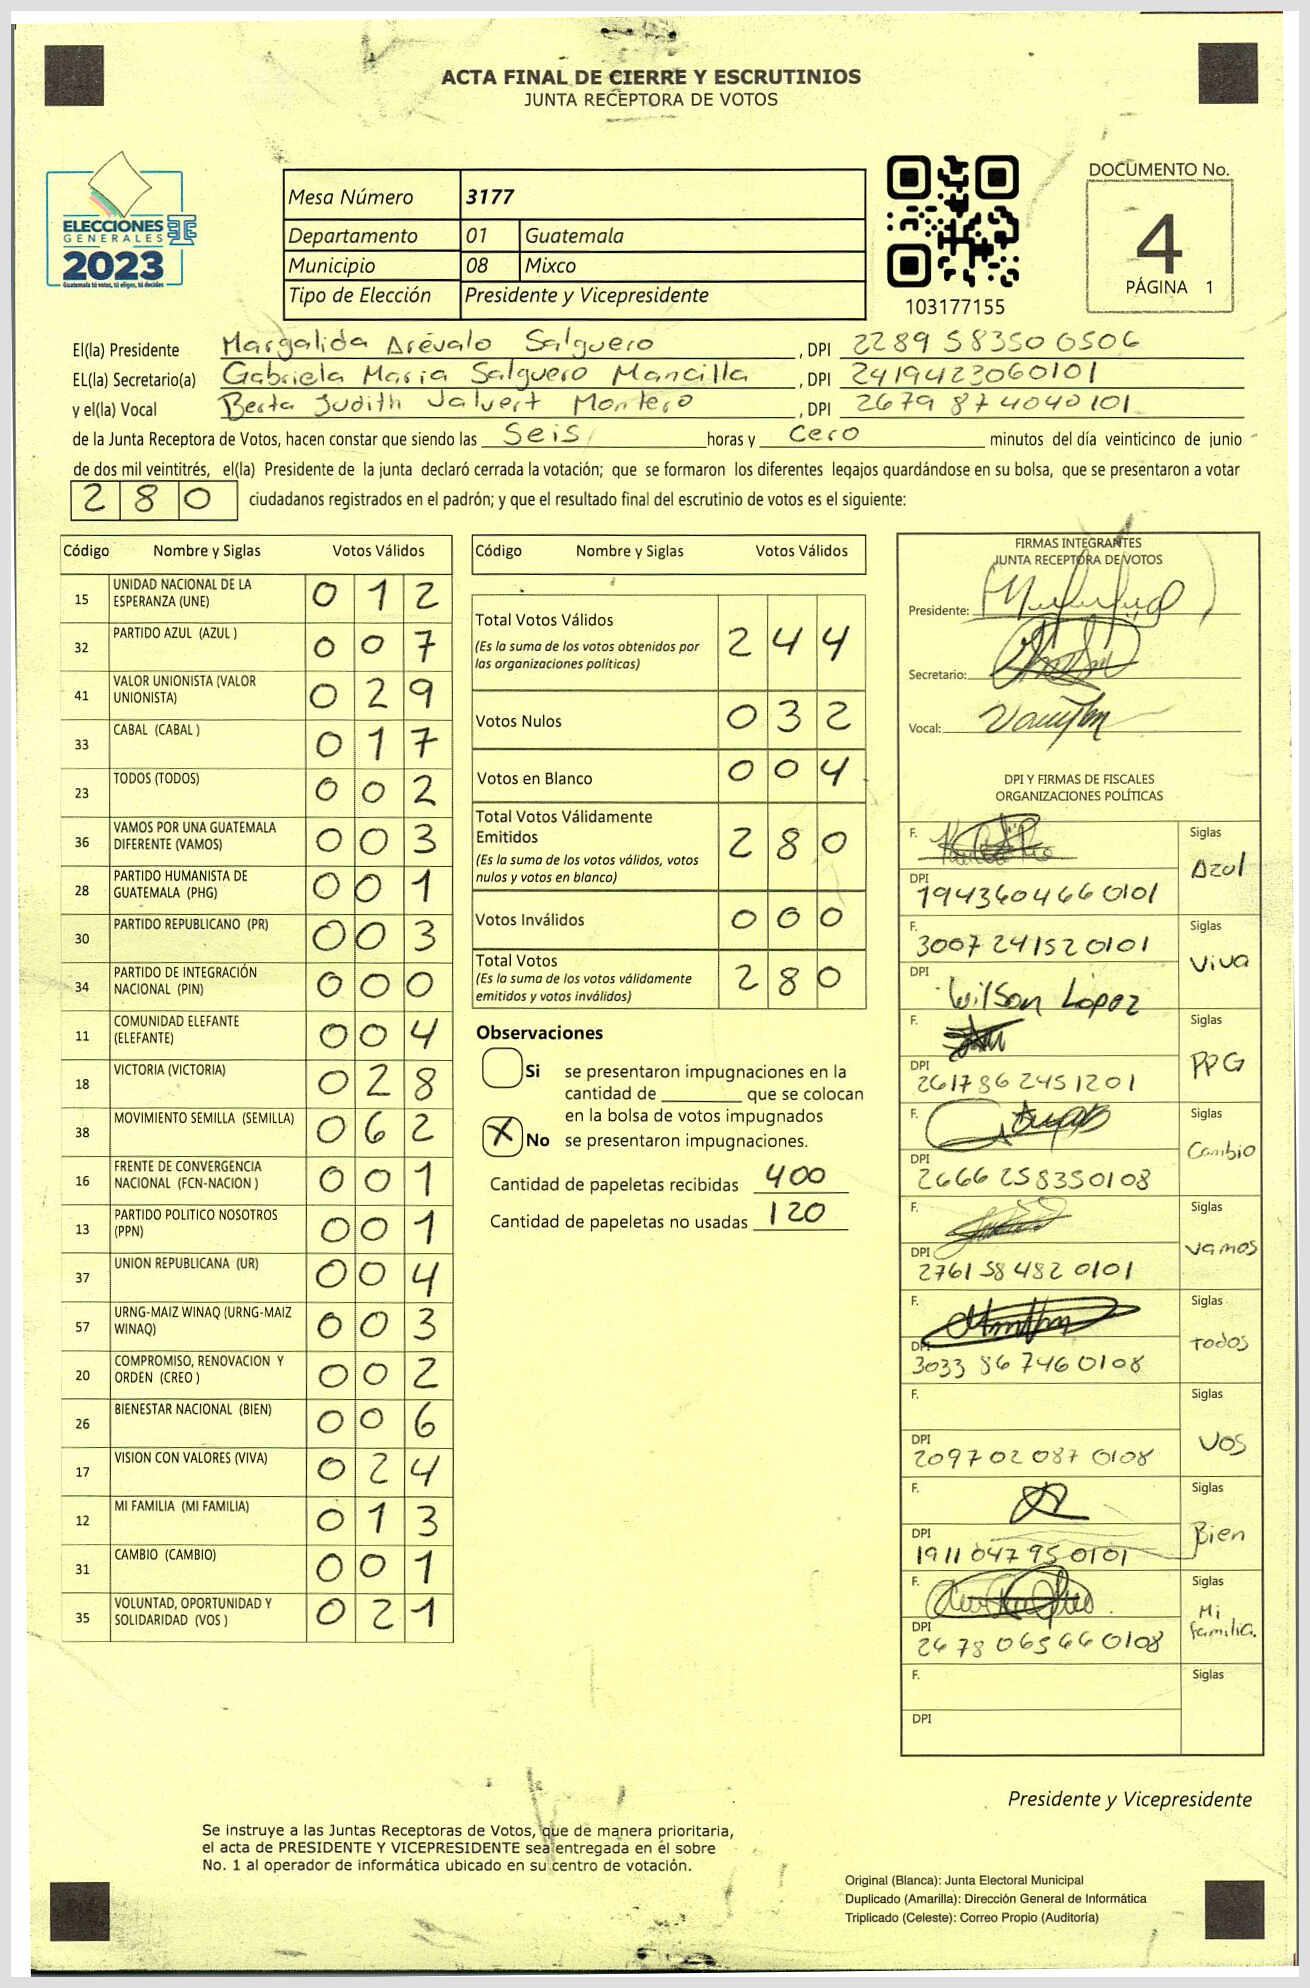 ACTA FINAL DE CIERRE Y ESCRUTINIOS
JUNTA RECEPTORA DE VOTOS
ELECCIONES
GENERALES
2023
Guatemala tú votas, tú eliges, tú decides
Mesa Número 3177
Departamento 01 Guatemala
Municipio 08 Mixco
Tipo de Elección Presidente y Vicepresidente
103177155
DOCUMENTO No.
4
PÁGINA 1
El(la) Presidente Margalida Arévalo Salguero , DPI 2289 58350 0506
EL(la) Secretario(a) Gabriela Maria Salguero Mancilla , DPI 2419423060101
y el(la) Vocal Berta Judith Jalvert Montero , DPI 2679 874040101
de la Junta Receptora de Votos, hacen constar que siendo las Seis horas y Cero minutos del día veinticinco de junio
de dos mil veintitrés, el(la) Presidente de la junta declaró cerrada la votación; que se formaron los diferentes legajos guardándose en su bolsa, que se presentaron a votar
280 ciudadanos registrados en el padrón; y que el resultado final del escrutinio de votos es el siguiente:
Código Nombre y Siglas Votos Válidos
15 UNIDAD NACIONAL DE LA ESPERANZA (UNE) 012
32 PARTIDO AZUL (AZUL ) 007
41 VALOR UNIONISTA (VALOR UNIONISTA) 029
33 CABAL (CABAL ) 017
23 TODOS (TODOS) 002
36 VAMOS POR UNA GUATEMALA DIFERENTE (VAMOS) 003
28 PARTIDO HUMANISTA DE GUATEMALA (PHG) 001
30 PARTIDO REPUBLICANO (PR) 003
34 PARTIDO DE INTEGRACIÓN NACIONAL (PIN) 000
11 COMUNIDAD ELEFANTE (ELEFANTE) 004
18 VICTORIA (VICTORIA) 028
38 MOVIMIENTO SEMILLA (SEMILLA) 062
16 FRENTE DE CONVERGENCIA NACIONAL (FCN-NACION ) 001
13 PARTIDO POLITICO NOSOTROS (PPN) 001
37 UNION REPUBLICANA (UR) 004
57 URNG-MAIZ WINAQ (URNG-MAIZ WINAQ) 003
20 COMPROMISO, RENOVACION Y ORDEN (CREO ) 002
26 BIENESTAR NACIONAL (BIEN) 006
17 VISION CON VALORES (VIVA) 024
12 MI FAMILIA (MI FAMILIA) 013
31 CAMBIO (CAMBIO) 001
35 VOLUNTAD, OPORTUNIDAD Y SOLIDARIDAD (VOS ) 021
Código Nombre y Siglas Votos Válidos
Total Votos Válidos 244
(Es la suma de los votos obtenidos por
las organizaciones políticas)
Votos Nulos 032
Votos en Blanco 004
Total Votos Válidamente
Emitidos 280
(Es la suma de los votos válidos, votos
nulos y votos en blanco)
Votos Inválidos 000
Total Votos 280
(Es la suma de los votos válidamente
emitidos y votos inválidos)
Observaciones
Si se presentaron impugnaciones en la
cantidad de ________ que se colocan
en la bolsa de votos impugnados
X No se presentaron impugnaciones.
Cantidad de papeletas recibidas 400
Cantidad de papeletas no usadas 120
FIRMAS INTEGRANTES
JUNTA RECEPTORA DE VOTOS
Presidente:
Secretario:
Vocal:
DPI Y FIRMAS DE FISCALES
ORGANIZACIONES POLÍTICAS
F. Siglas
Azul
DPI
1943604660101
F. 3007 24152 0101 Siglas
Viva
DPI
Wilson Lopez
F. Siglas
PPG
DPI
261786 2451201
F. Siglas
Cambio
DPI
2666 258350108
F. Siglas
Vamos
DPI
2761 58 482 0101
F. Siglas
Todos
DPI
3033 86 746 0108
F. Siglas
VOS
DPI
209702087 0108
F. Siglas
Bien
DPI
1911 047 95 0101
F. Siglas
Mi
familia.
DPI
2678 065660108
F. Siglas
DPI
Presidente y Vicepresidente
Se instruye a las Juntas Receptoras de Votos, que de manera prioritaria,
el acta de PRESIDENTE Y VICEPRESIDENTE sea entregada en el sobre
No. 1 al operador de informática ubicado en su centro de votación.
Original (Blanca): Junta Electoral Municipal
Duplicado (Amarilla): Dirección General de Informática
Triplicado (Celeste): Correo Propio (Auditoría)